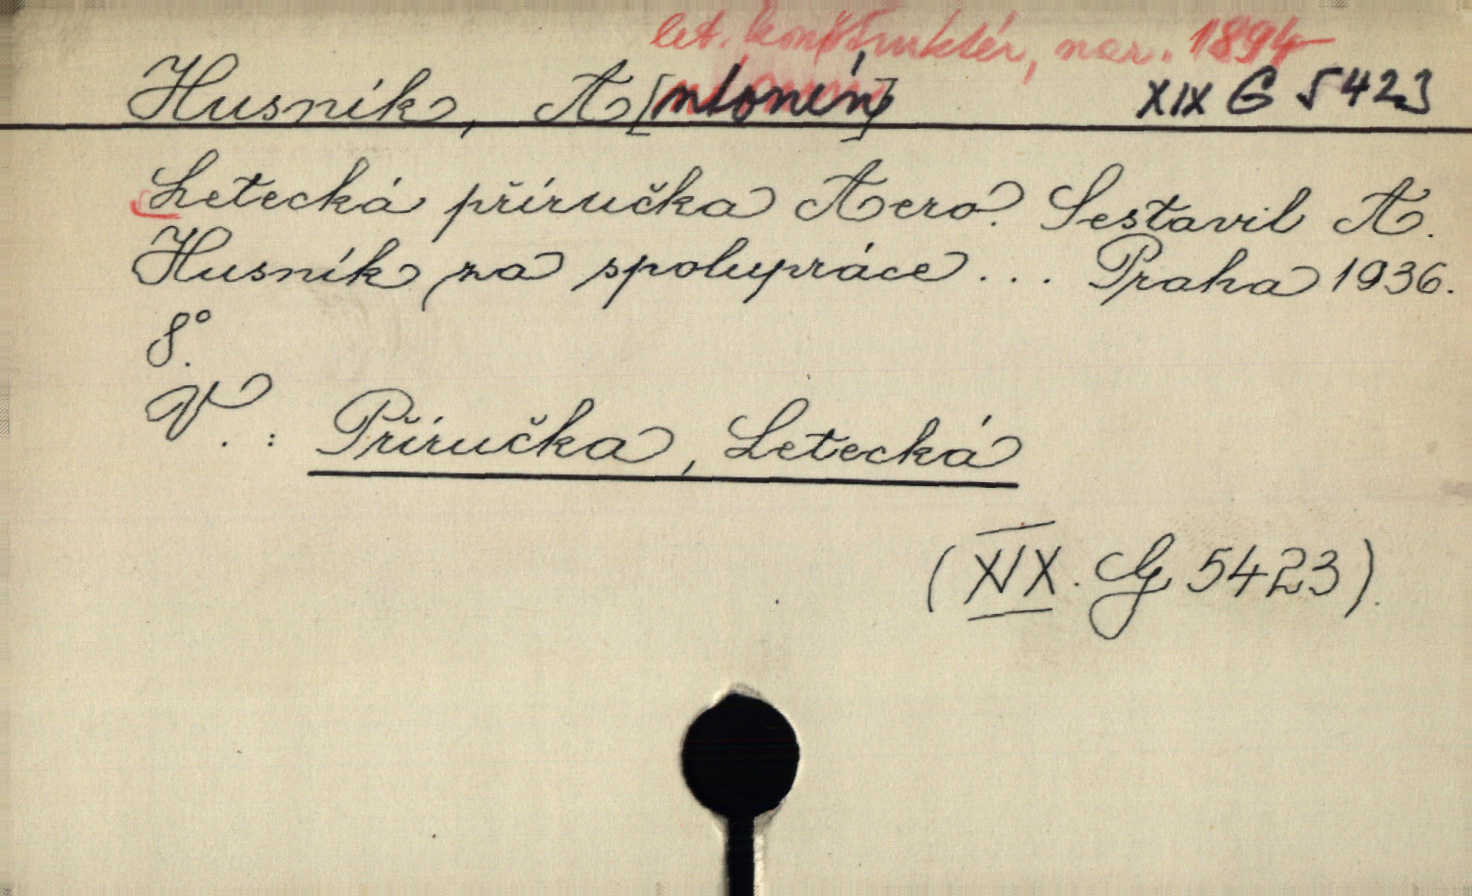 let. konstruktér, nar. 1894
Husník, A[ntonín] XIX G 5423
Letecká příručka Aero. Sestavil A.
Husník za spolupráce... Praha 1936.
8°.
V.: Příručka, Letecká
(XIX. G 5423).